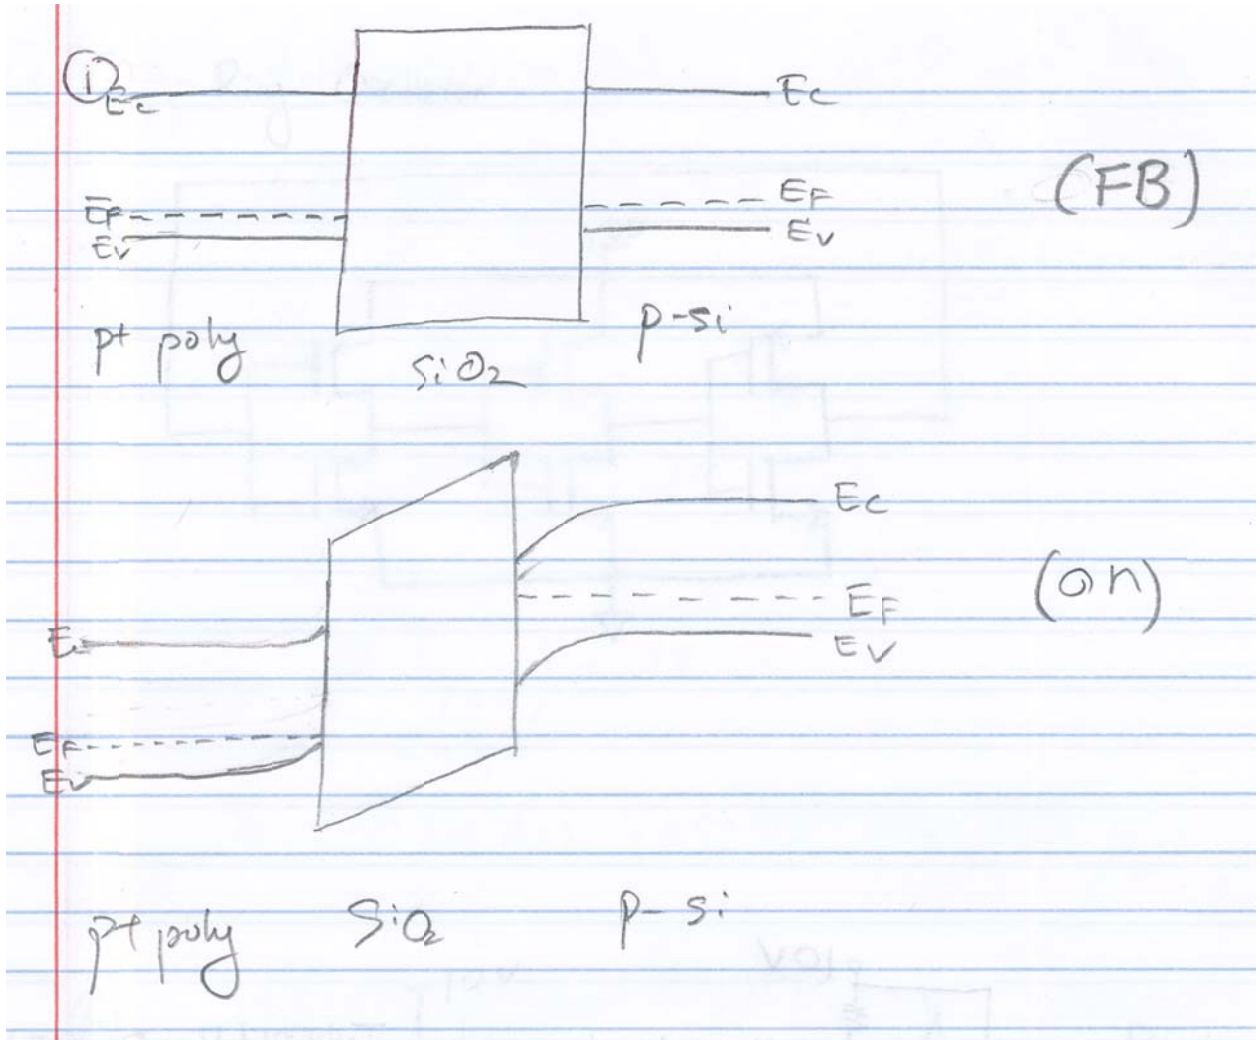 ①
Ec Ec
EF EF
Ev Ev
(FB)
p+ poly SiO2 p-si
Ec
(on)
EF
Ev
E
EF
Ev
p+ poly SiO2 p-si